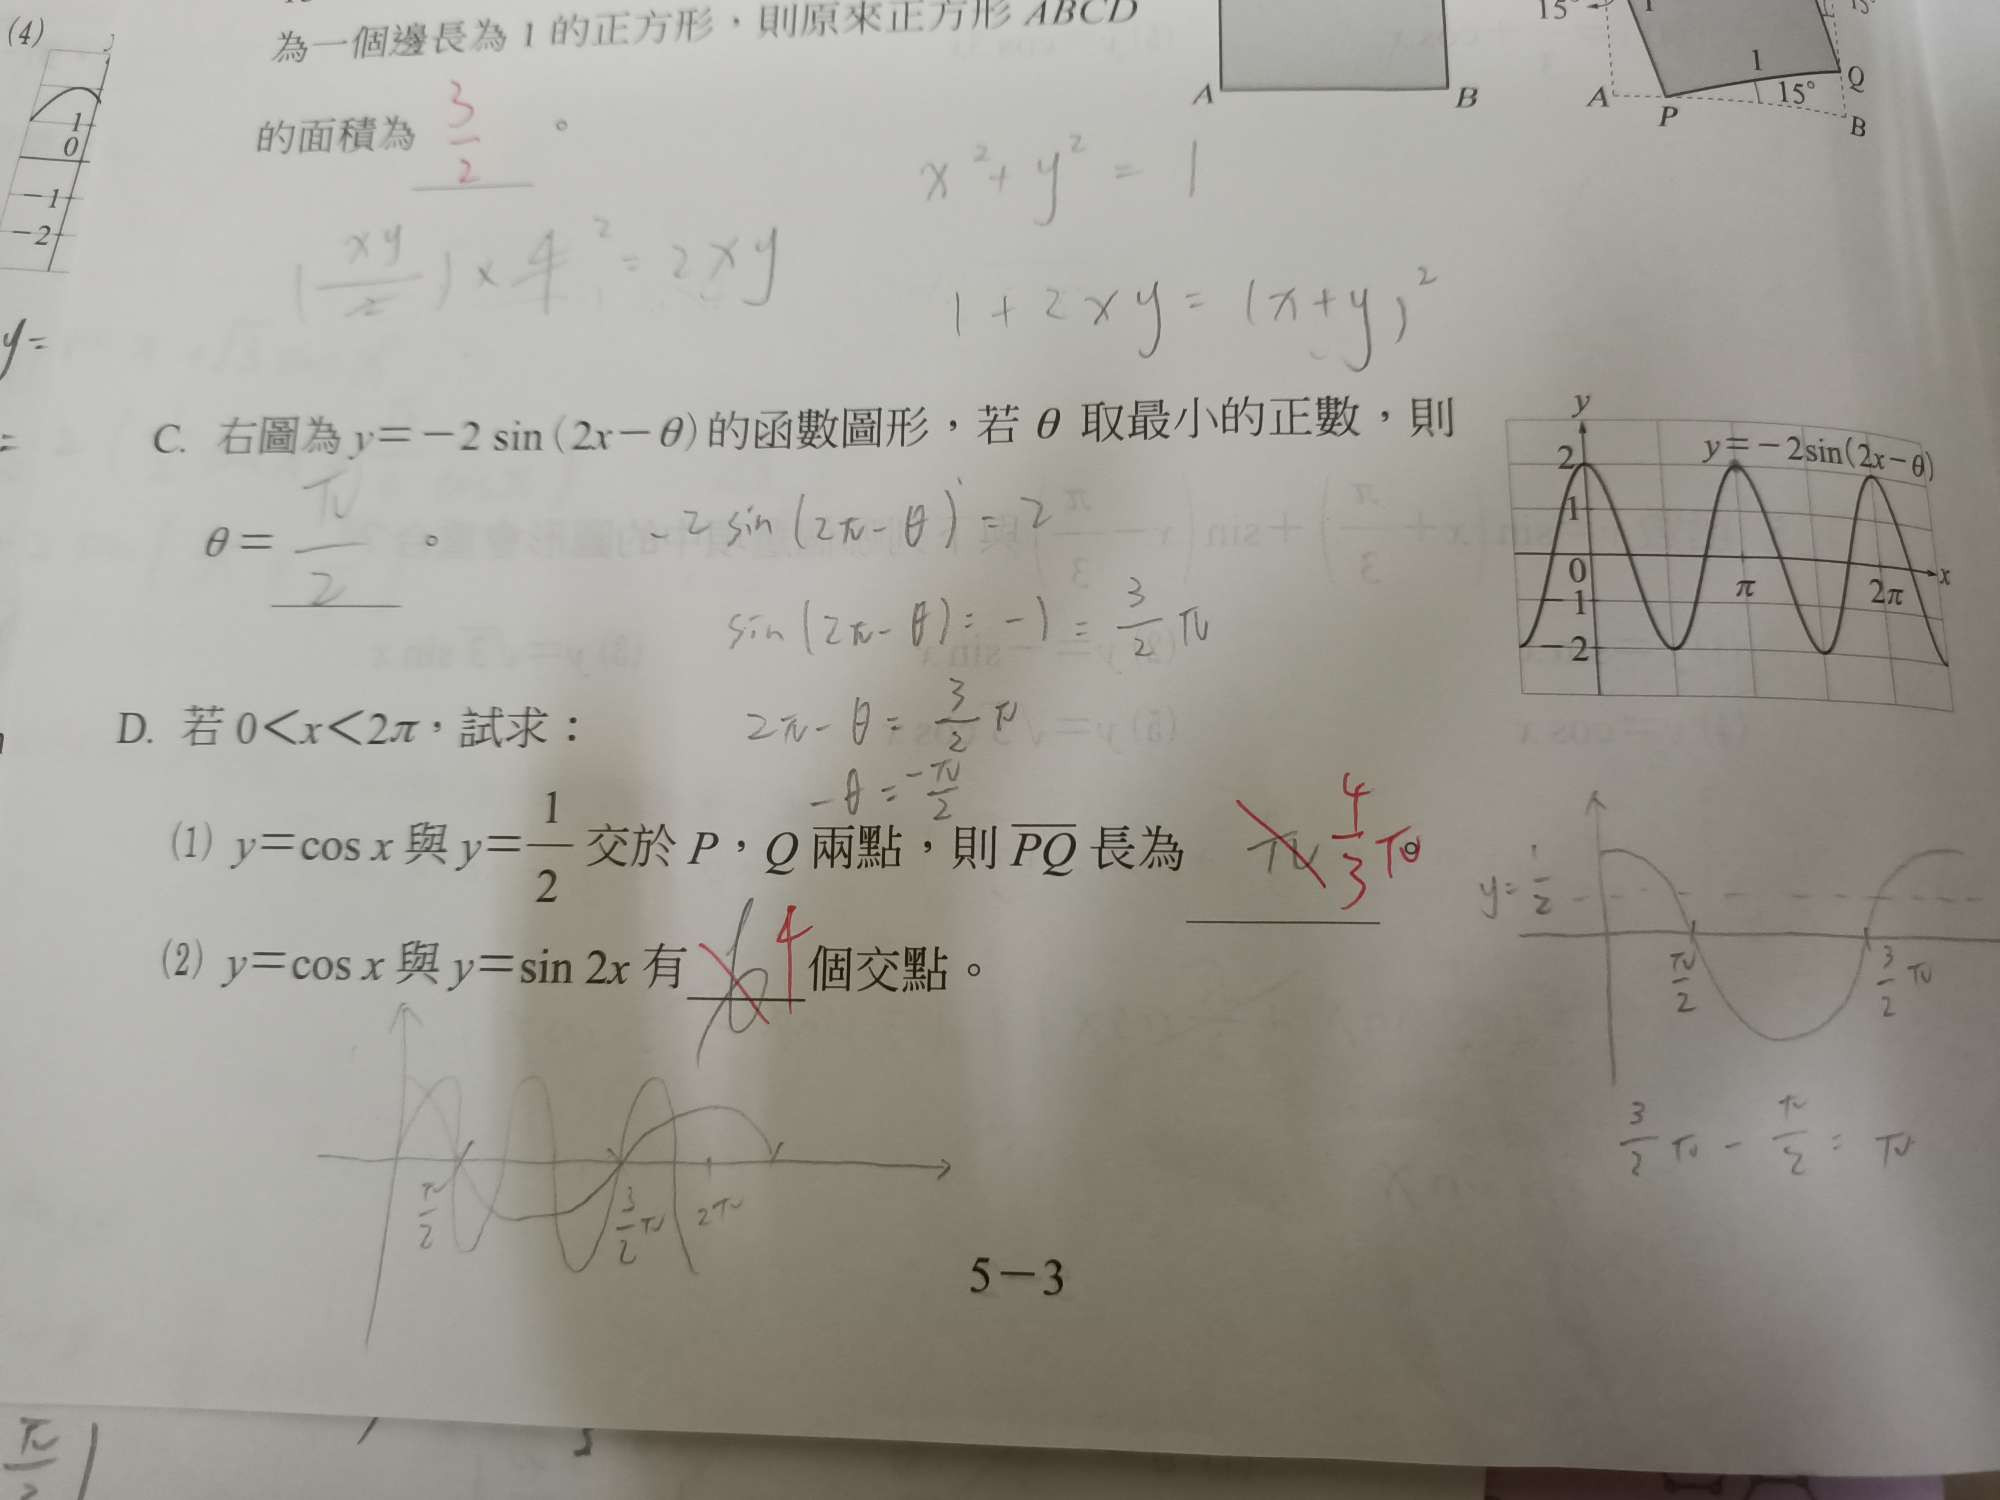 (4)
為一個邊長為 1 的正方形，則原來正方形 ABCD
的面積為 3/2 。
A B
15° 1 15°
A P 1 15° Q B
1
0
-1
-2
x²+y² = 1
(xy/2)×4² = 2xy
1+2xy = (x+y)²
y=
C. 右圖為 y=-2 sin(2x-θ)的函數圖形，若 θ 取最小的正數，則
θ= π/2 。
-2 sin(2π-θ) = 2
sin(2π-θ) = -1 = 3/2 π
2π-θ = 3/2 π
-θ = -π/2
y
y=-2sin(2x-θ)
2
1
0 π 2π x
-1
-2
D. 若 0<x<2π，試求：
(1) y=cos x 與 y=1/2 交於 P，Q 兩點，則 PQ 長為 π 4/3 π 。
(2) y=cos x 與 y=sin 2x 有 6 4 個交點。
y=1/2
π/2 3/2 π
3/2 π - π/2 = π
π/2 3/2 π 2π
5-3